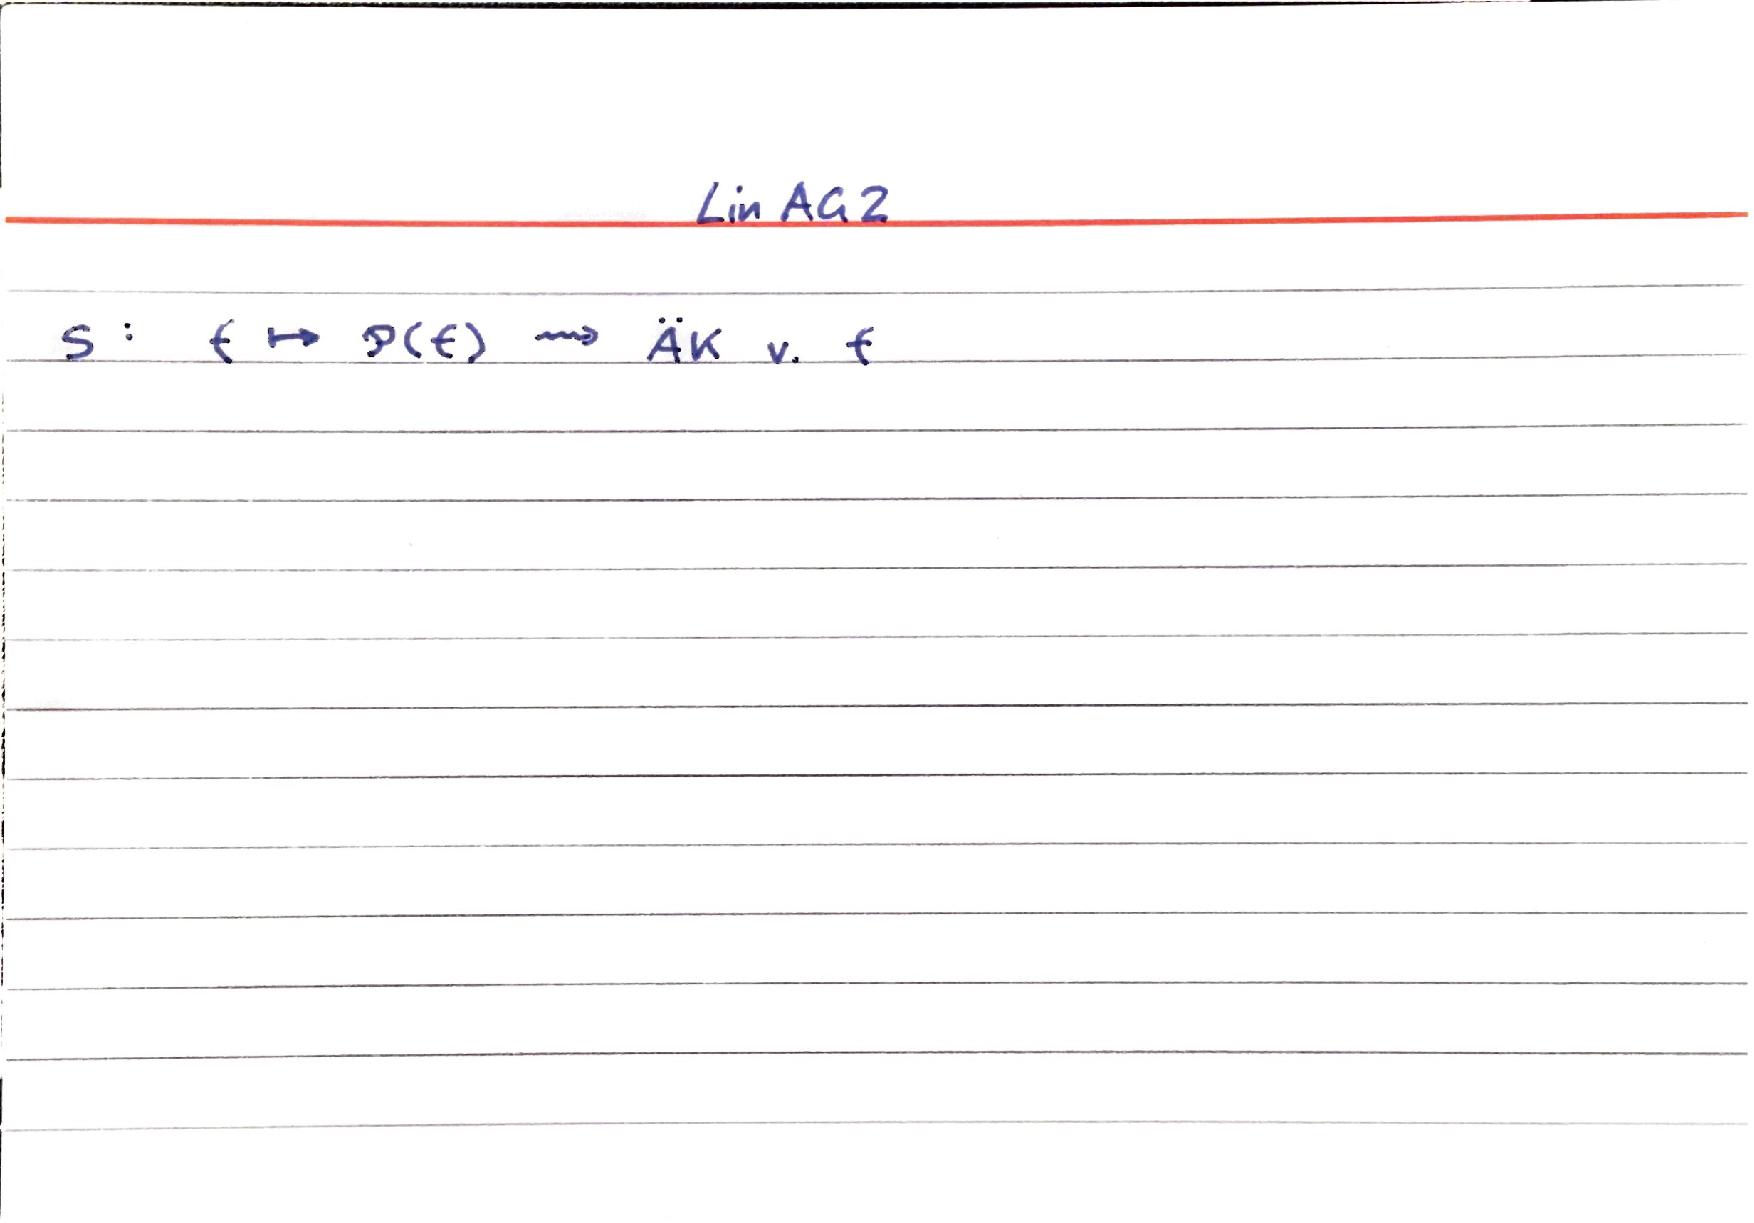 Lin AG 2
S: f ↦ P(f) ⇝ ÄK v. f